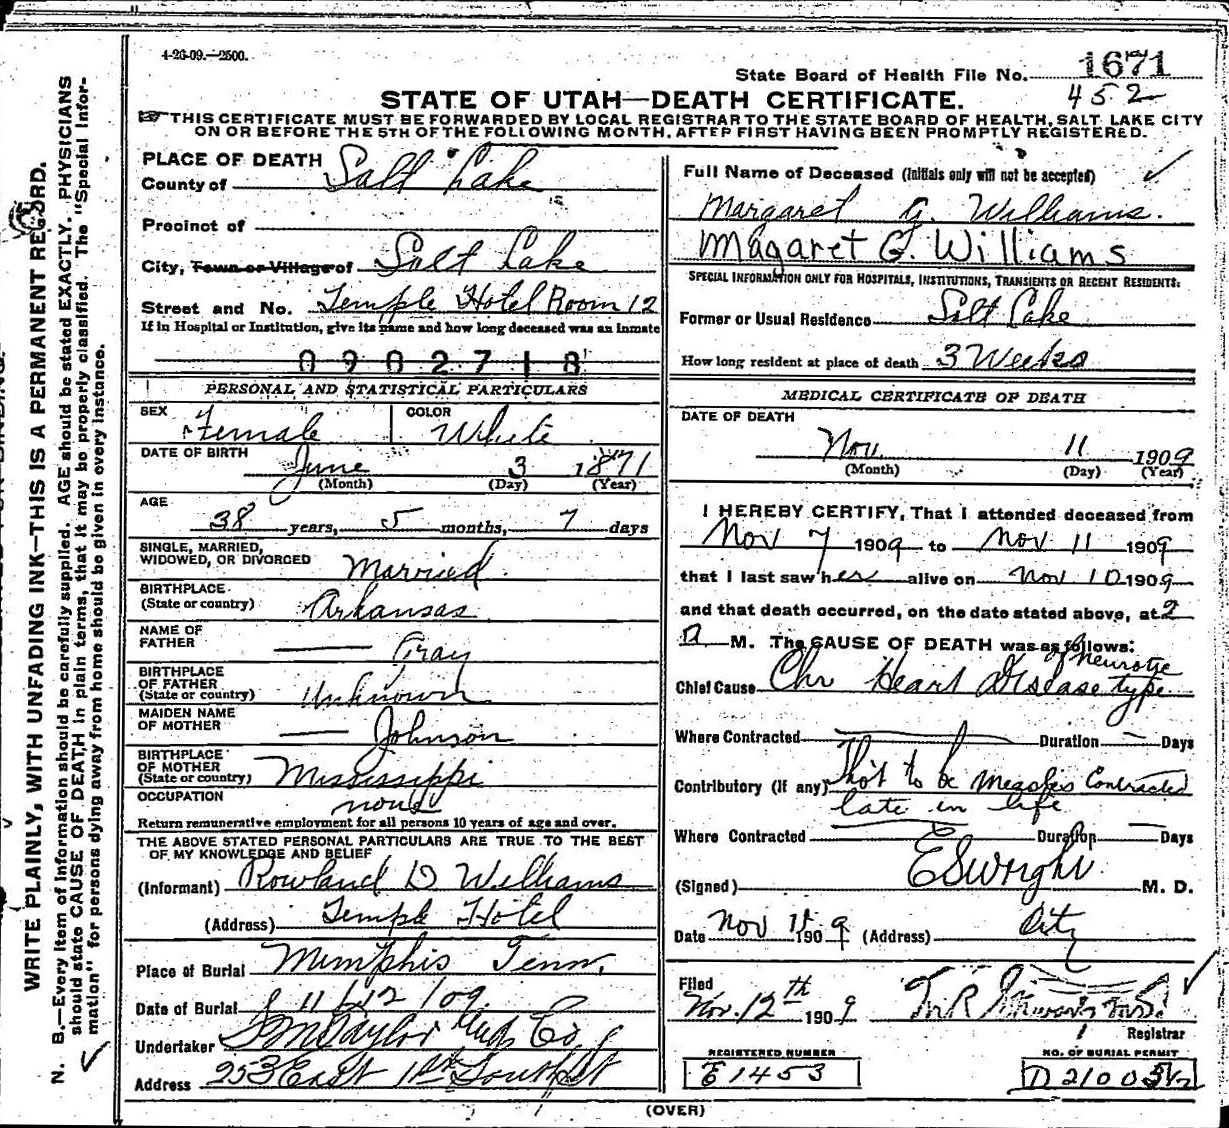 4-26-09.—2500.
State Board of Health File No. 1671
452
STATE OF UTAH—DEATH CERTIFICATE.
THIS CERTIFICATE MUST BE FORWARDED BY LOCAL REGISTRAR TO THE STATE BOARD OF HEALTH, SALT LAKE CITY
ON OR BEFORE THE 5TH OF THE FOLLOWING MONTH, AFTER FIRST HAVING BEEN PROMPTLY REGISTERED.
WRITE PLAINLY, WITH UNFADING INK—THIS IS A PERMANENT RECORD.
N. B.—Every item of information should be carefully supplied. AGE should be stated EXACTLY. PHYSICIANS
should state CAUSE OF DEATH in plain terms, that it may be properly classified. The "Special Infor-
mation" for persons dying away from home should be given in every instance.
PLACE OF DEATH
County of Salt Lake
Precinct of
City, Town or Village of Salt Lake
Street and No. Temple Hotel Room 12
If in Hospital or Institution, give its name and how long deceased was an inmate
0902718
PERSONAL AND STATISTICAL PARTICULARS
SEX Female COLOR White
DATE OF BIRTH June 3 1871
(Month) (Day) (Year)
AGE
38 years, 5 months, 7 days
SINGLE, MARRIED,
WIDOWED, OR DIVORCED Married
BIRTHPLACE
(State or country) Arkansas
NAME OF
FATHER Gray
BIRTHPLACE
OF FATHER
(State or country) Unknown
MAIDEN NAME
OF MOTHER Johnson
BIRTHPLACE
OF MOTHER
(State or country) Mississippi
OCCUPATION none
Return remunerative employment for all persons 10 years of age and over.
THE ABOVE STATED PERSONAL PARTICULARS ARE TRUE TO THE BEST
OF MY KNOWLEDGE AND BELIEF
(Informant) Rowland D Williams
(Address) Temple Hotel
Place of Burial Memphis Tenn.
Date of Burial 11/12/09.
Undertaker S M Taylor Und Co.
Address 253 East 1st South St
Full Name of Deceased (Initials only will not be accepted)
Margaret G. Williams.
Magaret G. Williams
SPECIAL INFORMATION ONLY FOR HOSPITALS, INSTITUTIONS, TRANSIENTS OR RECENT RESIDENTS.
Former or Usual Residence Salt Lake
How long resident at place of death 3 Weeks
MEDICAL CERTIFICATE OF DEATH
DATE OF DEATH
Nov. 11 1909
(Month) (Day) (Year)
I HEREBY CERTIFY, That I attended deceased from
Nov 7 1909 to Nov 11 1909
that I last saw her alive on Nov 10 1909
and that death occurred, on the date stated above, at 2
a M. The CAUSE OF DEATH was as follows:
Chief Cause Chr Heart Disease of neurotic type
Where Contracted — Duration — Days
Contributory (if any) Tho't to be Measles Contracted
late in life
Where Contracted — Duration — Days
(Signed) E S Wright M. D.
Date Nov 11 1909 (Address) City
Filed
Nov. 12th 1909
Registrar
REGISTERED NUMBER
E1453
NO. OF BURIAL PERMIT
(OVER)